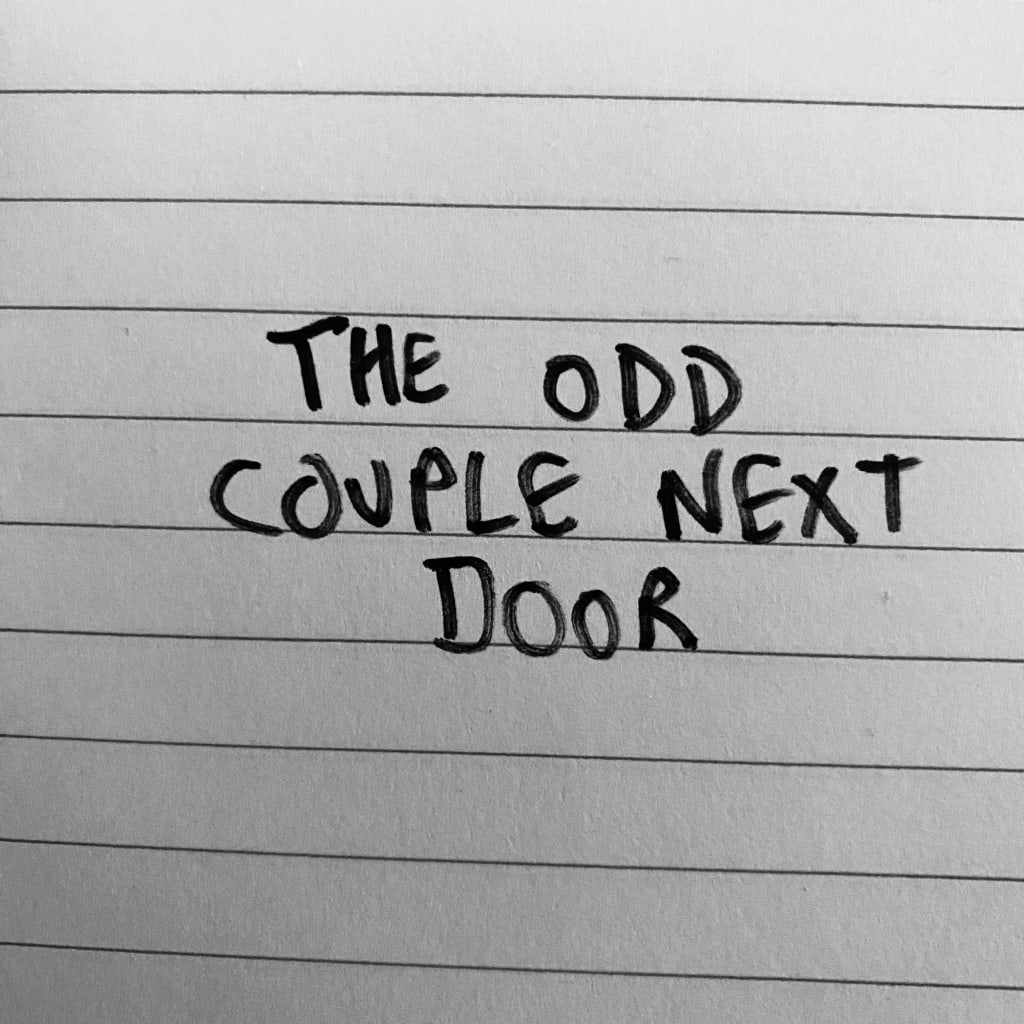 THE ODD
COUPLE NEXT
DOOR